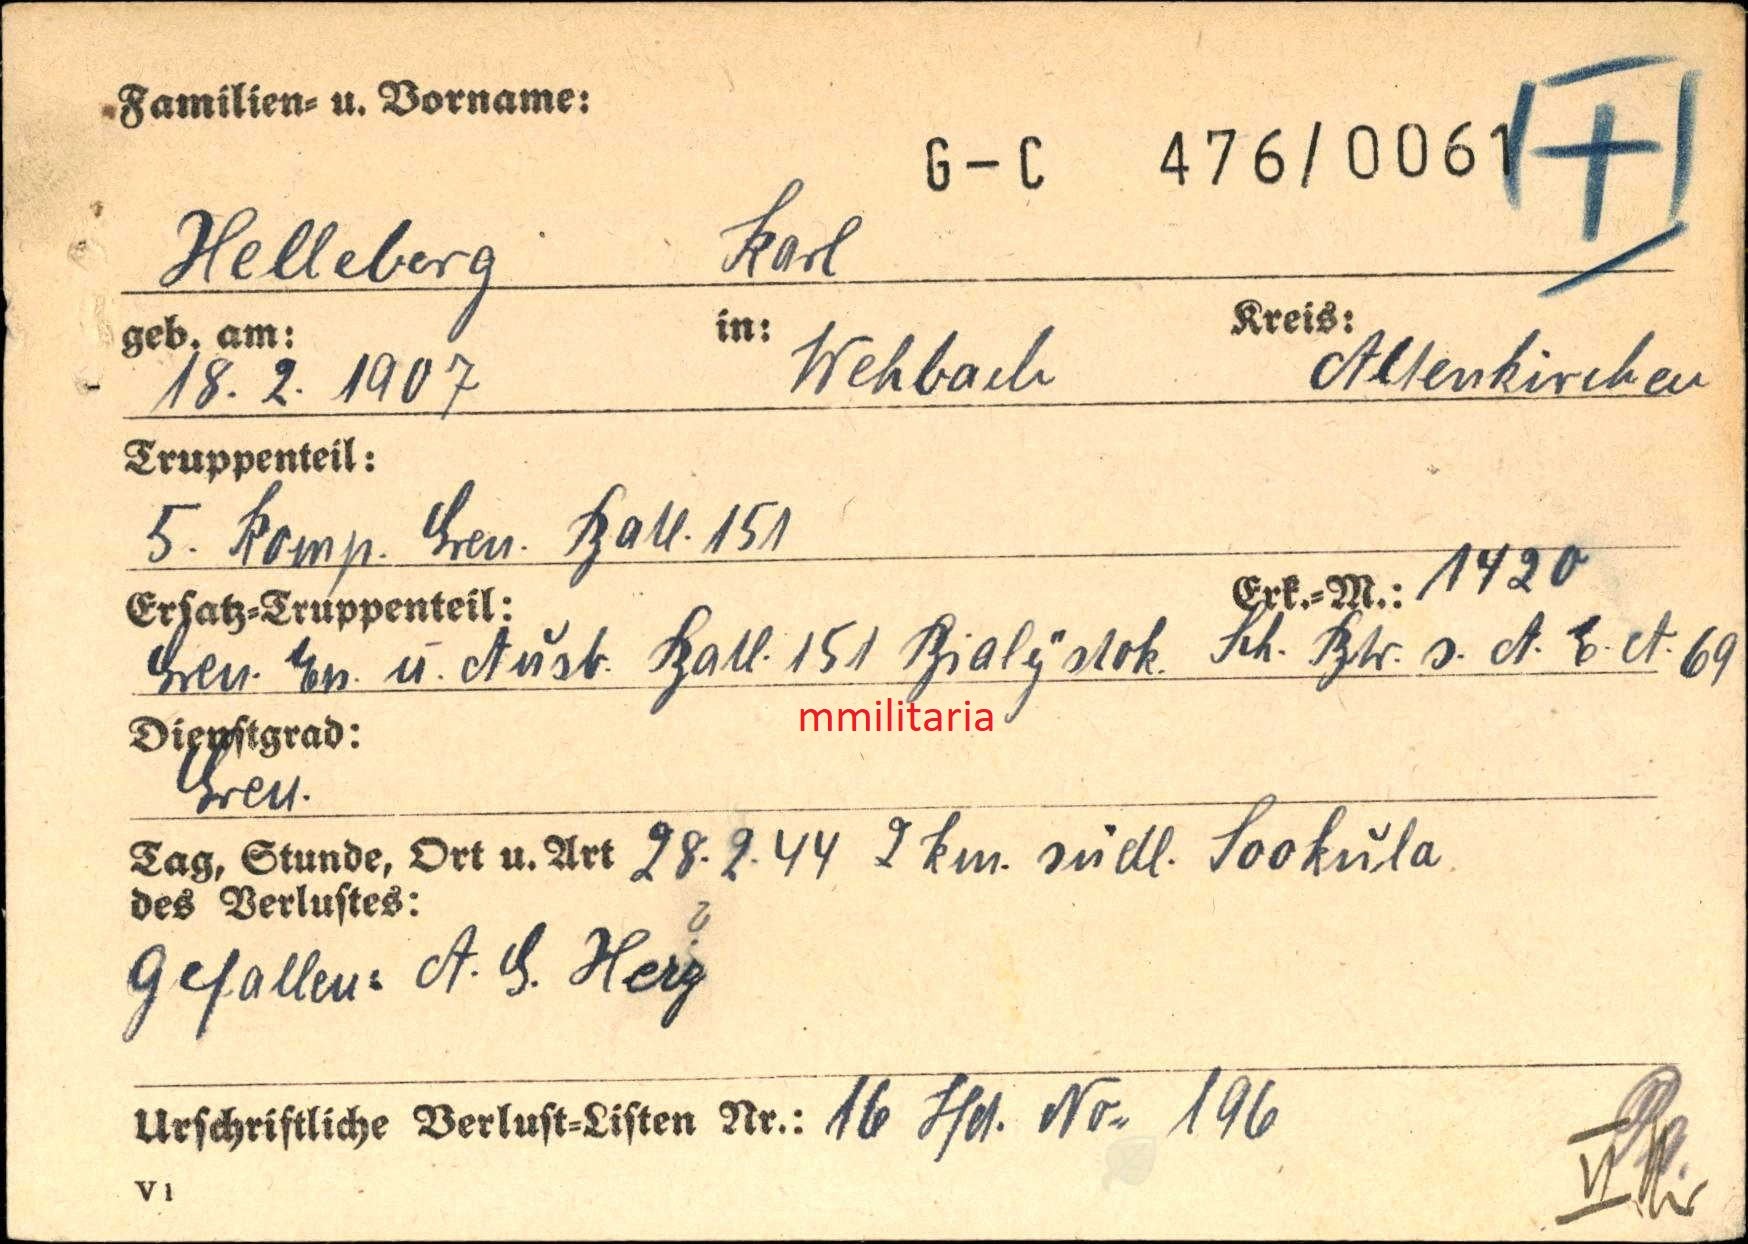 Familien- u. Vorname:
G-C 476/0061
Helleberg Karl
geb. am: in: Kreis:
18. 2. 1907 Wehbach Altenkirchen
Truppenteil:
5. Komp. Gren. Batl. 151
Ersatz-Truppenteil: Erk.-M.: 1420
Gren. Ers. u. Ausb. Batl. 151 Bialystok. Sch. Btr. s. A. E. A. 69
mmilitaria
Dienstgrad:
Gren.
Tag, Stunde, Ort u. Art 28. 2. 44 2 km. südl. Sookula
des Verlustes:
?
Gefallen: A. G. Herz
Urschriftliche Verlust-Listen Nr.: 16 lfd. No. 196
V 1
VI